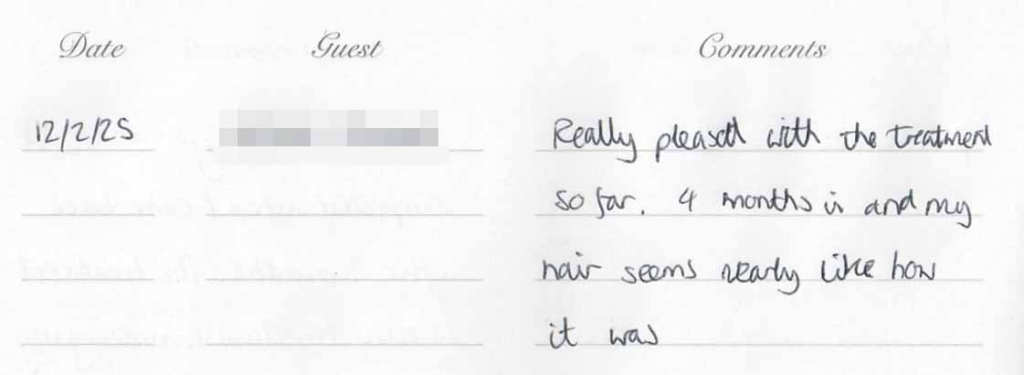 Date Guest Comments
12/2/25 Really pleased with the treatment
so far. 4 months in and my
hair seems nearly like how
it was